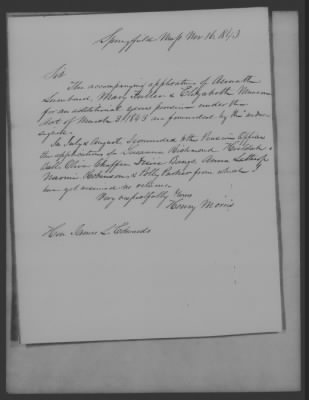 Springfield Mass Nov 16, 1843
Sir
The accompanying applications of Asenath
Lombard, Mary Fuller & Elizabeth
for an additional years pension under the
Act of March 3d 1843 are forwarded by the under-
signed.
In July & August I forwarded to the Pension Office
the applications of Susanna Richmond, Huldah
Ball, Olive Irene George, Anna Lathrop
Naomi Robinson & Polly Parker from which I
have yet received no returns.
Very respectfully Yours
Henry Morris
Hon James L Edwards